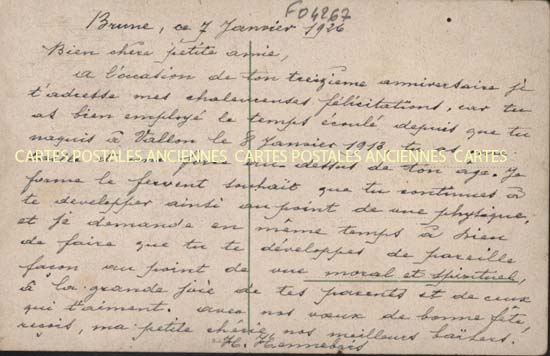 F04267
Brune, ce 7 Janvier 1926
Bien chère petite amie,
A l'occasion de ton treizième anniversaire je
t'adresse mes chaleureuses félicitations, car tu
as bien employé le temps écoulé depuis que tu
naquis à Vallon le 8 Janvier 1913, tu es
CARTES POSTALES ANCIENNES CARTES POSTALES ANCIENNES CARTES
au dessus de ton age. Je
forme le fervent souhait que tu continues à
te developper ainsi au point de vue physique;
et je demande en même temps à Dieu
de faire que tu te développes de pareille
façon au point de vue moral et spirituel,
à la grande joie de tes parents et de ceux
qui t'aiment. Avec nos vœux de bonne fête,
reçois, ma petite chérie, nos meilleurs baisers.
H. Hennebois